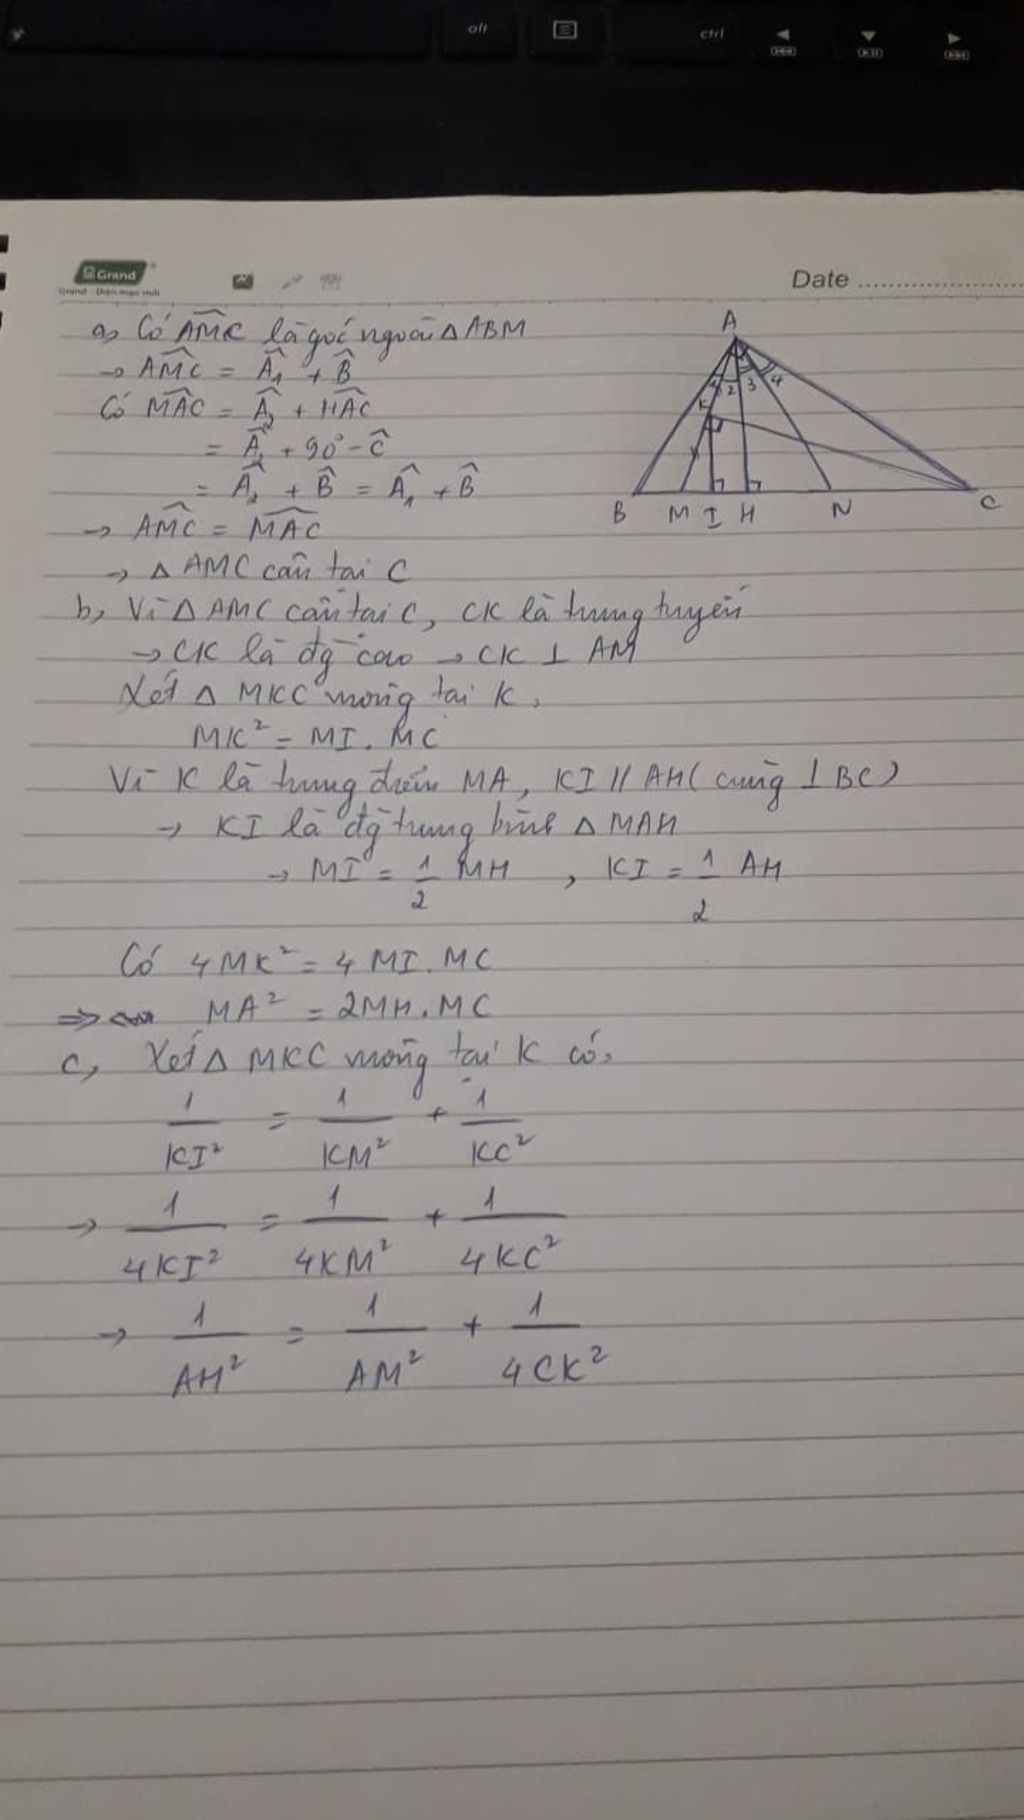 alt
ctrl
Grand
Grand - Diện mạo mới
Date
a, Có AM̂C là góc ngoài △ABM
→ AM̂C = Â₁ + B̂
Có MÂC = Â₂ + HÂC
= Â₂ + 90° - Ĉ
= Â₂ + B̂ = Â₁ + B̂
→ AM̂C = MÂC
→ △ AMC cân tại C
A
1 2 3 4
K
B M I H N C
b, Vì △ AMC cân tại C, CK là trung tuyến
→ CK là đg cao → CK ⊥ AM
Xét △ MKC vuông tại K,
MK² = MI . MC
Vì K là trung điểm MA, KI // AH (cùng ⊥ BC)
→ KI là đg trung bình △ MAH
→ MI = 1/2 MH , KI = 1/2 AH
Có 4MK² = 4 MI . MC
⇒ MA² = 2MH . MC
c, Xét △ MKC vuông tại K có,
1/KI² = 1/KM² + 1/KC²
→ 1/4KI² = 1/4KM² + 1/4KC²
→ 1/AH² = 1/AM² + 1/4CK²